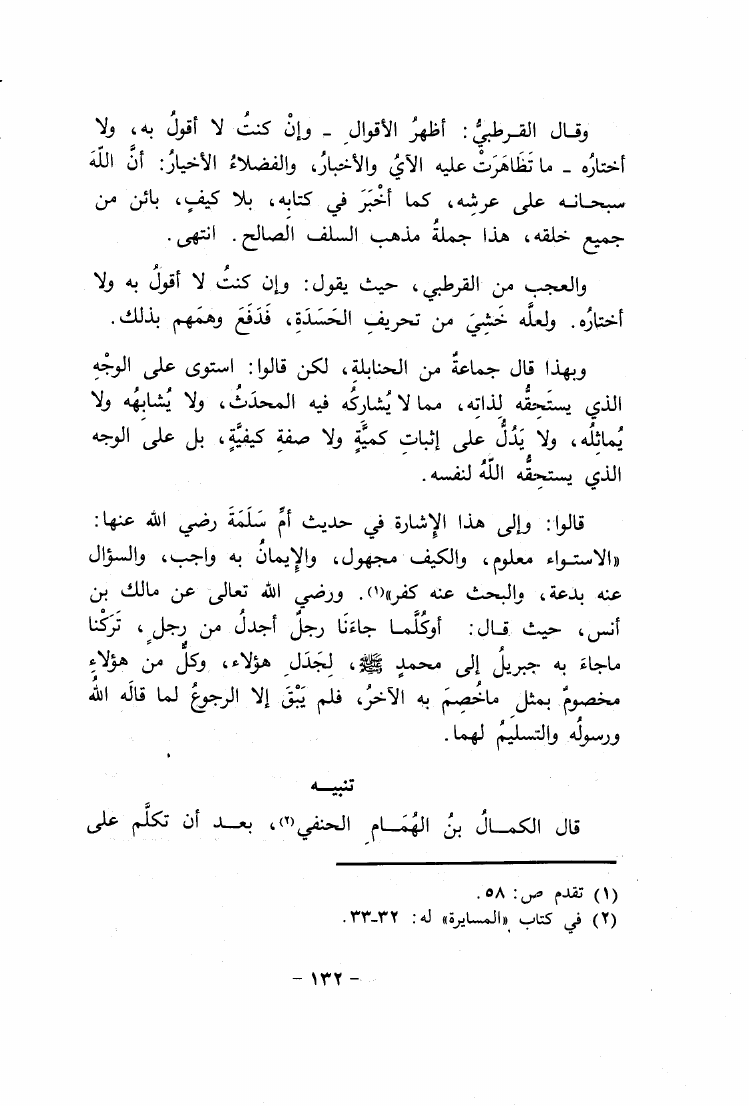 وقال القرطبيُّ: أظهرُ الأقوالِ - وإنْ كنتُ لا أقولُ به، ولا
أختارُه - ما تَظَاهَرَتْ عليه الآيُ والأخبارُ، والفضلاءُ الأخيارُ: أنَّ اللّهَ
سبحانه على عرشِه، كما أَخْبَرَ في كتابِه، بلا كيفٍ، بائن من
جميع خلقه، هذا جملةُ مذهب السلف الصالح. انتهى.
والعجب من القرطبي، حيث يقول: وإن كنتُ لا أقولُ به ولا
أختارُه. ولعلَّه خَشِيَ من تحريفِ الحَسَدَةِ، فَدَفَعَ وهمَهم بذلك.
وبهذا قال جماعةٌ من الحنابلةِ، لكن قالوا: استوى على الوجْهِ
الذي يستَحِقُّه لذاتِه، مما لا يُشاركُه فيه المحدَثُ، ولا يُشابهُه ولا
يُماثلُه، ولا يَدُلُّ على إثباتِ كميَّةٍ ولا صفةٍ كيفيَّةٍ، بل على الوجه
الذي يستحِقُّه اللّهُ لنفسه.
قالوا: وإلى هذا الإشارة في حديث أمِّ سَلَمَةَ رضي الله عنها:
«الاستواء معلوم، والكيف مجهول، والإيمانُ به واجب، والسؤال
عنه بدعة، والبحث عنه كفر»(١). ورضي الله تعالى عن مالك بن
أنس، حيث قال: أوكُلَّما جاءَنَا رجلٌ أجدلُ من رجلٍ، تَرَكْنا
ماجاءَ به جبريلُ إلى محمدٍ ﷺ، لِجَدَلِ هؤلاء، وكلٌّ من هؤلاءِ
مخصومٌ بمثلِ ماخُصِمَ به الآخرُ، فلم يَبْقَ إلا الرجوعُ لما قالَه اللهُ
ورسولُه والتسليمُ لهما.
تنبيه
قال الكمالُ بنُ الهُمَامِ الحنفي(٢)، بعد أن تكلَّم على
(١) تقدم ص: ٥٨.
(٢) في كتاب «المسايرة» له: ٣٢-٣٣.
- ١٣٢ -